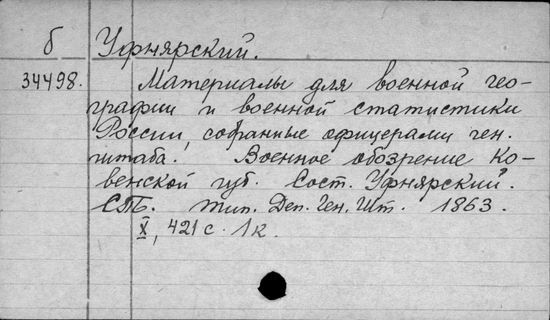 б Уфнярский.
34498. Материалы для военной гео-
графии и военной статистики
России, собранные офицерами ген.
штаба. Военное обозрение Ко-
венской губ. Сост. Уфнярский.
СПБ. Тип. Деп. Ген. Шт. 1863.
X, 421 с. 1 к.